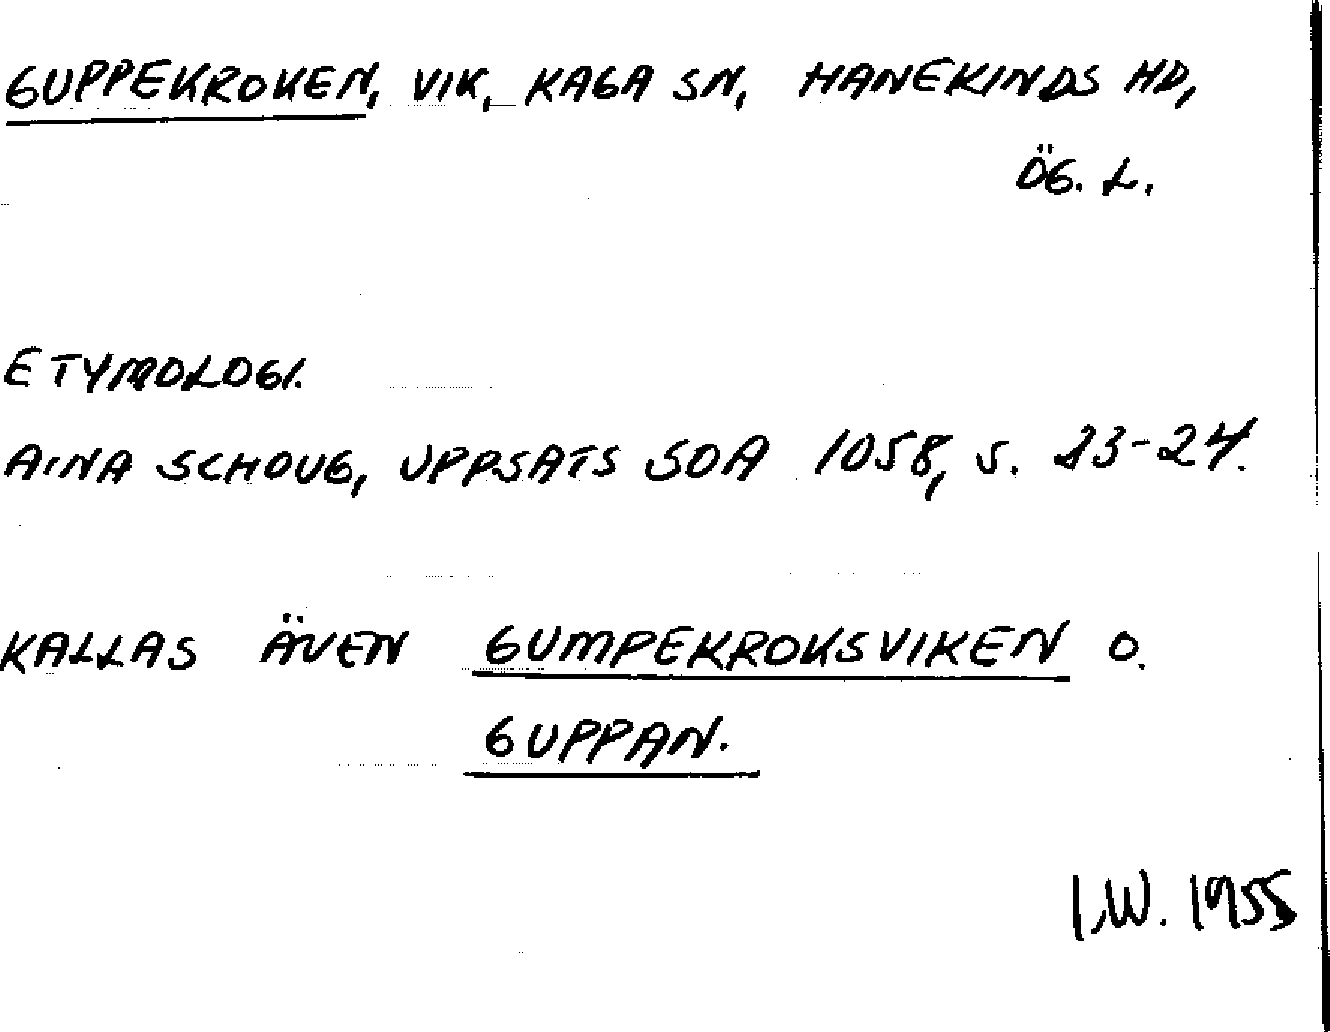 GUPPEKROKEN, VIK, KAGA SN, HANEKINDS HD,
ÖG. L.
ETYMOLOGI.
AINA SCHOUG, UPPSATS SOA 1058, S. 23-24.
KALLAS ÄVEN GUMPEKROKSVIKEN O.
GUPPAN.
I.W. 1955